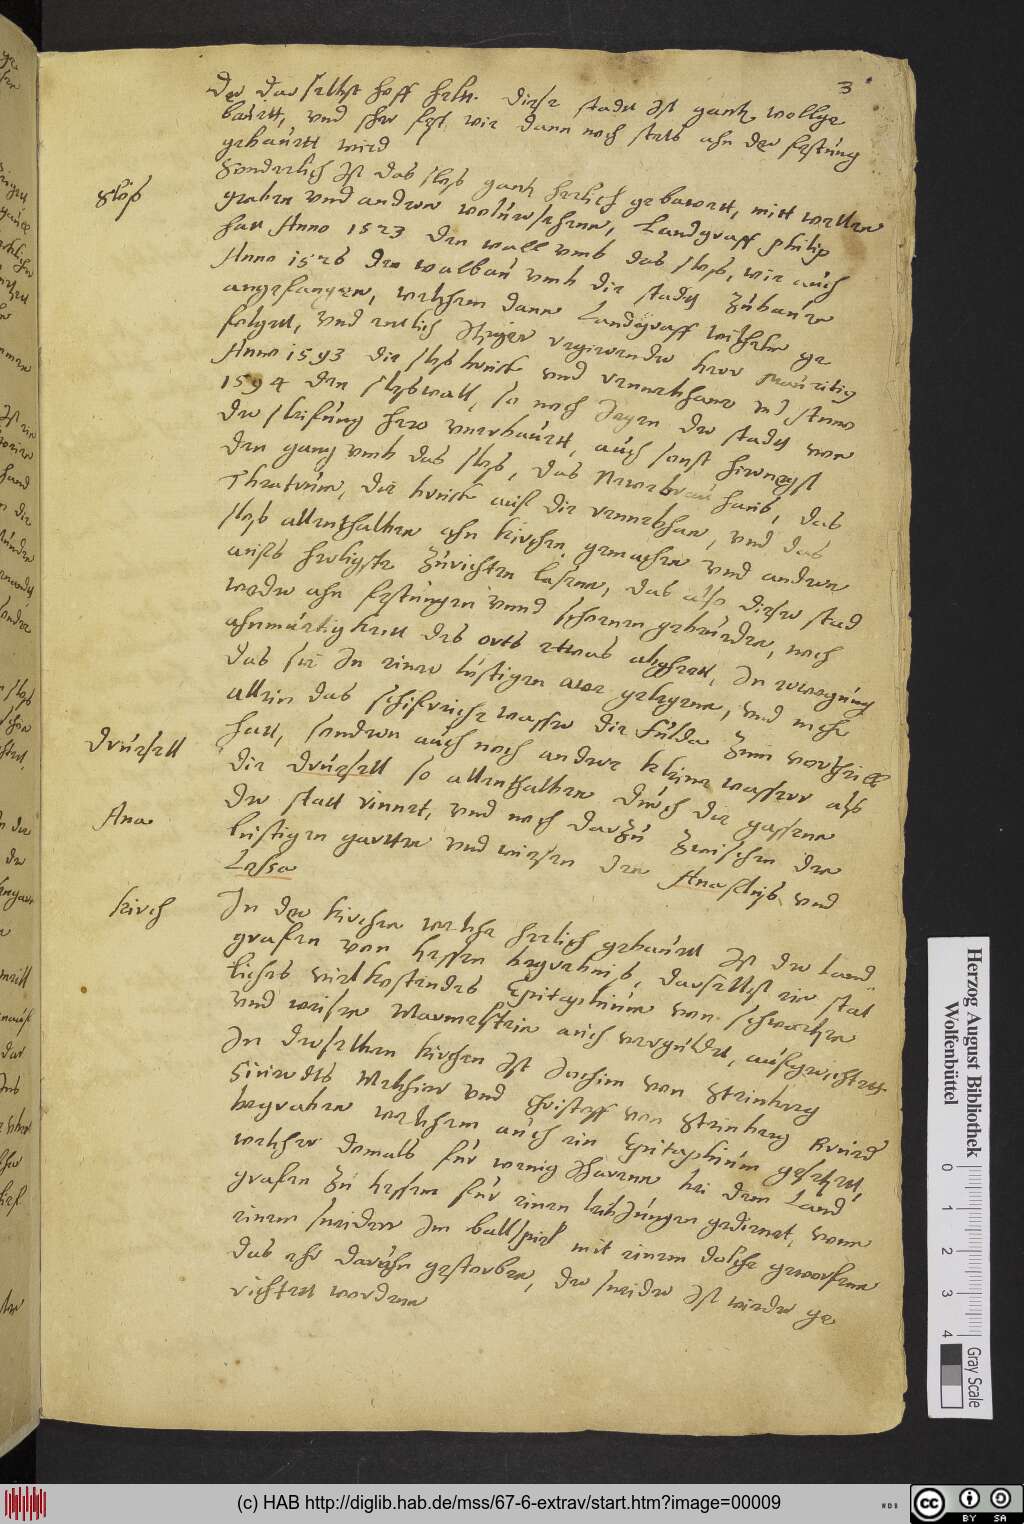 3
der daselbst hoff helt. diese stadt ist gantz wollge
bauett, und sehr fest wie dann noch stets ahn der festung
gebauett wird
Sonderlich ist das sloß gantz herlich gebawett, mitt wellen
Sloß
graben und andren wolversehenn, Landgraff philip
hatt Anno 1523 den wall umb das sloß, wie auch
Anno 1526 den walbau umb die stadt zubauen
angefangen, welchem dann Landgraff wilhelm ge
folgett, und entlich itziger regierender herr Mauritig
Anno 1593 die sloßbrucke und rennebhane und Anno
1594 den sloßwall, so noch jegen der stadt von
der sleifung hero unerbauett, auch sonst hirnegst
den gang umb das sloß, das Newebrau haus, das
Theatrum, die brucke auf die rennebhan, und das
sloß allenthalben ahn kirchen, gemachen und andren
aufs herligste zurichten lasenn, das also dieser stad
weder ahn festungen unnd schonen gebeuden, noch
ahnmutigkeitt des orts etwas abgehett, In erwegung
das sie In einer lustigen awe gelegenn, und nicht
allein das schifreiche wasser die Fulda zum vortheill
hatt, sondern auch noch andere kleine wasser als
Druesell
die Druesell so allenthalben durch die gassenn
der statt rinnet, und noch darzu zwischen den
Ana
lustigen garten und wiesen den Anafluß und
Lessa
kirch
In der kirchen welche herlich gebauett ist der Land
grafen von hessen begrebnis, daselbst ein stat
liches vielkostendes Epitaphium von schwartzen
und weisen Marmelstein auch vergüldet, aufgerichtett
In derselben kirchen ist Jochim von Steinberg
Sivierdts Melchior und Christoff von Steinberg Bruder
begraben welchem auch ein Epitaphium gesetzett,
welcher domals für wenig Jharenn bei dem Land
grafen zu hessen für einen leibjungen gedienet, vonn
einem sneider Im ballspiel mit einem dolche geworfenn
das ehr darahn gestorben, der sneider ist wieder ge
richtett wordenn
Herzog August Bibliothek
Wolfenbüttel
0 1 2 3 4
Gray Scale
(c) HAB http://diglib.hab.de/mss/67-6-extrav/start.htm?image=00009
WDB
cc BY SA